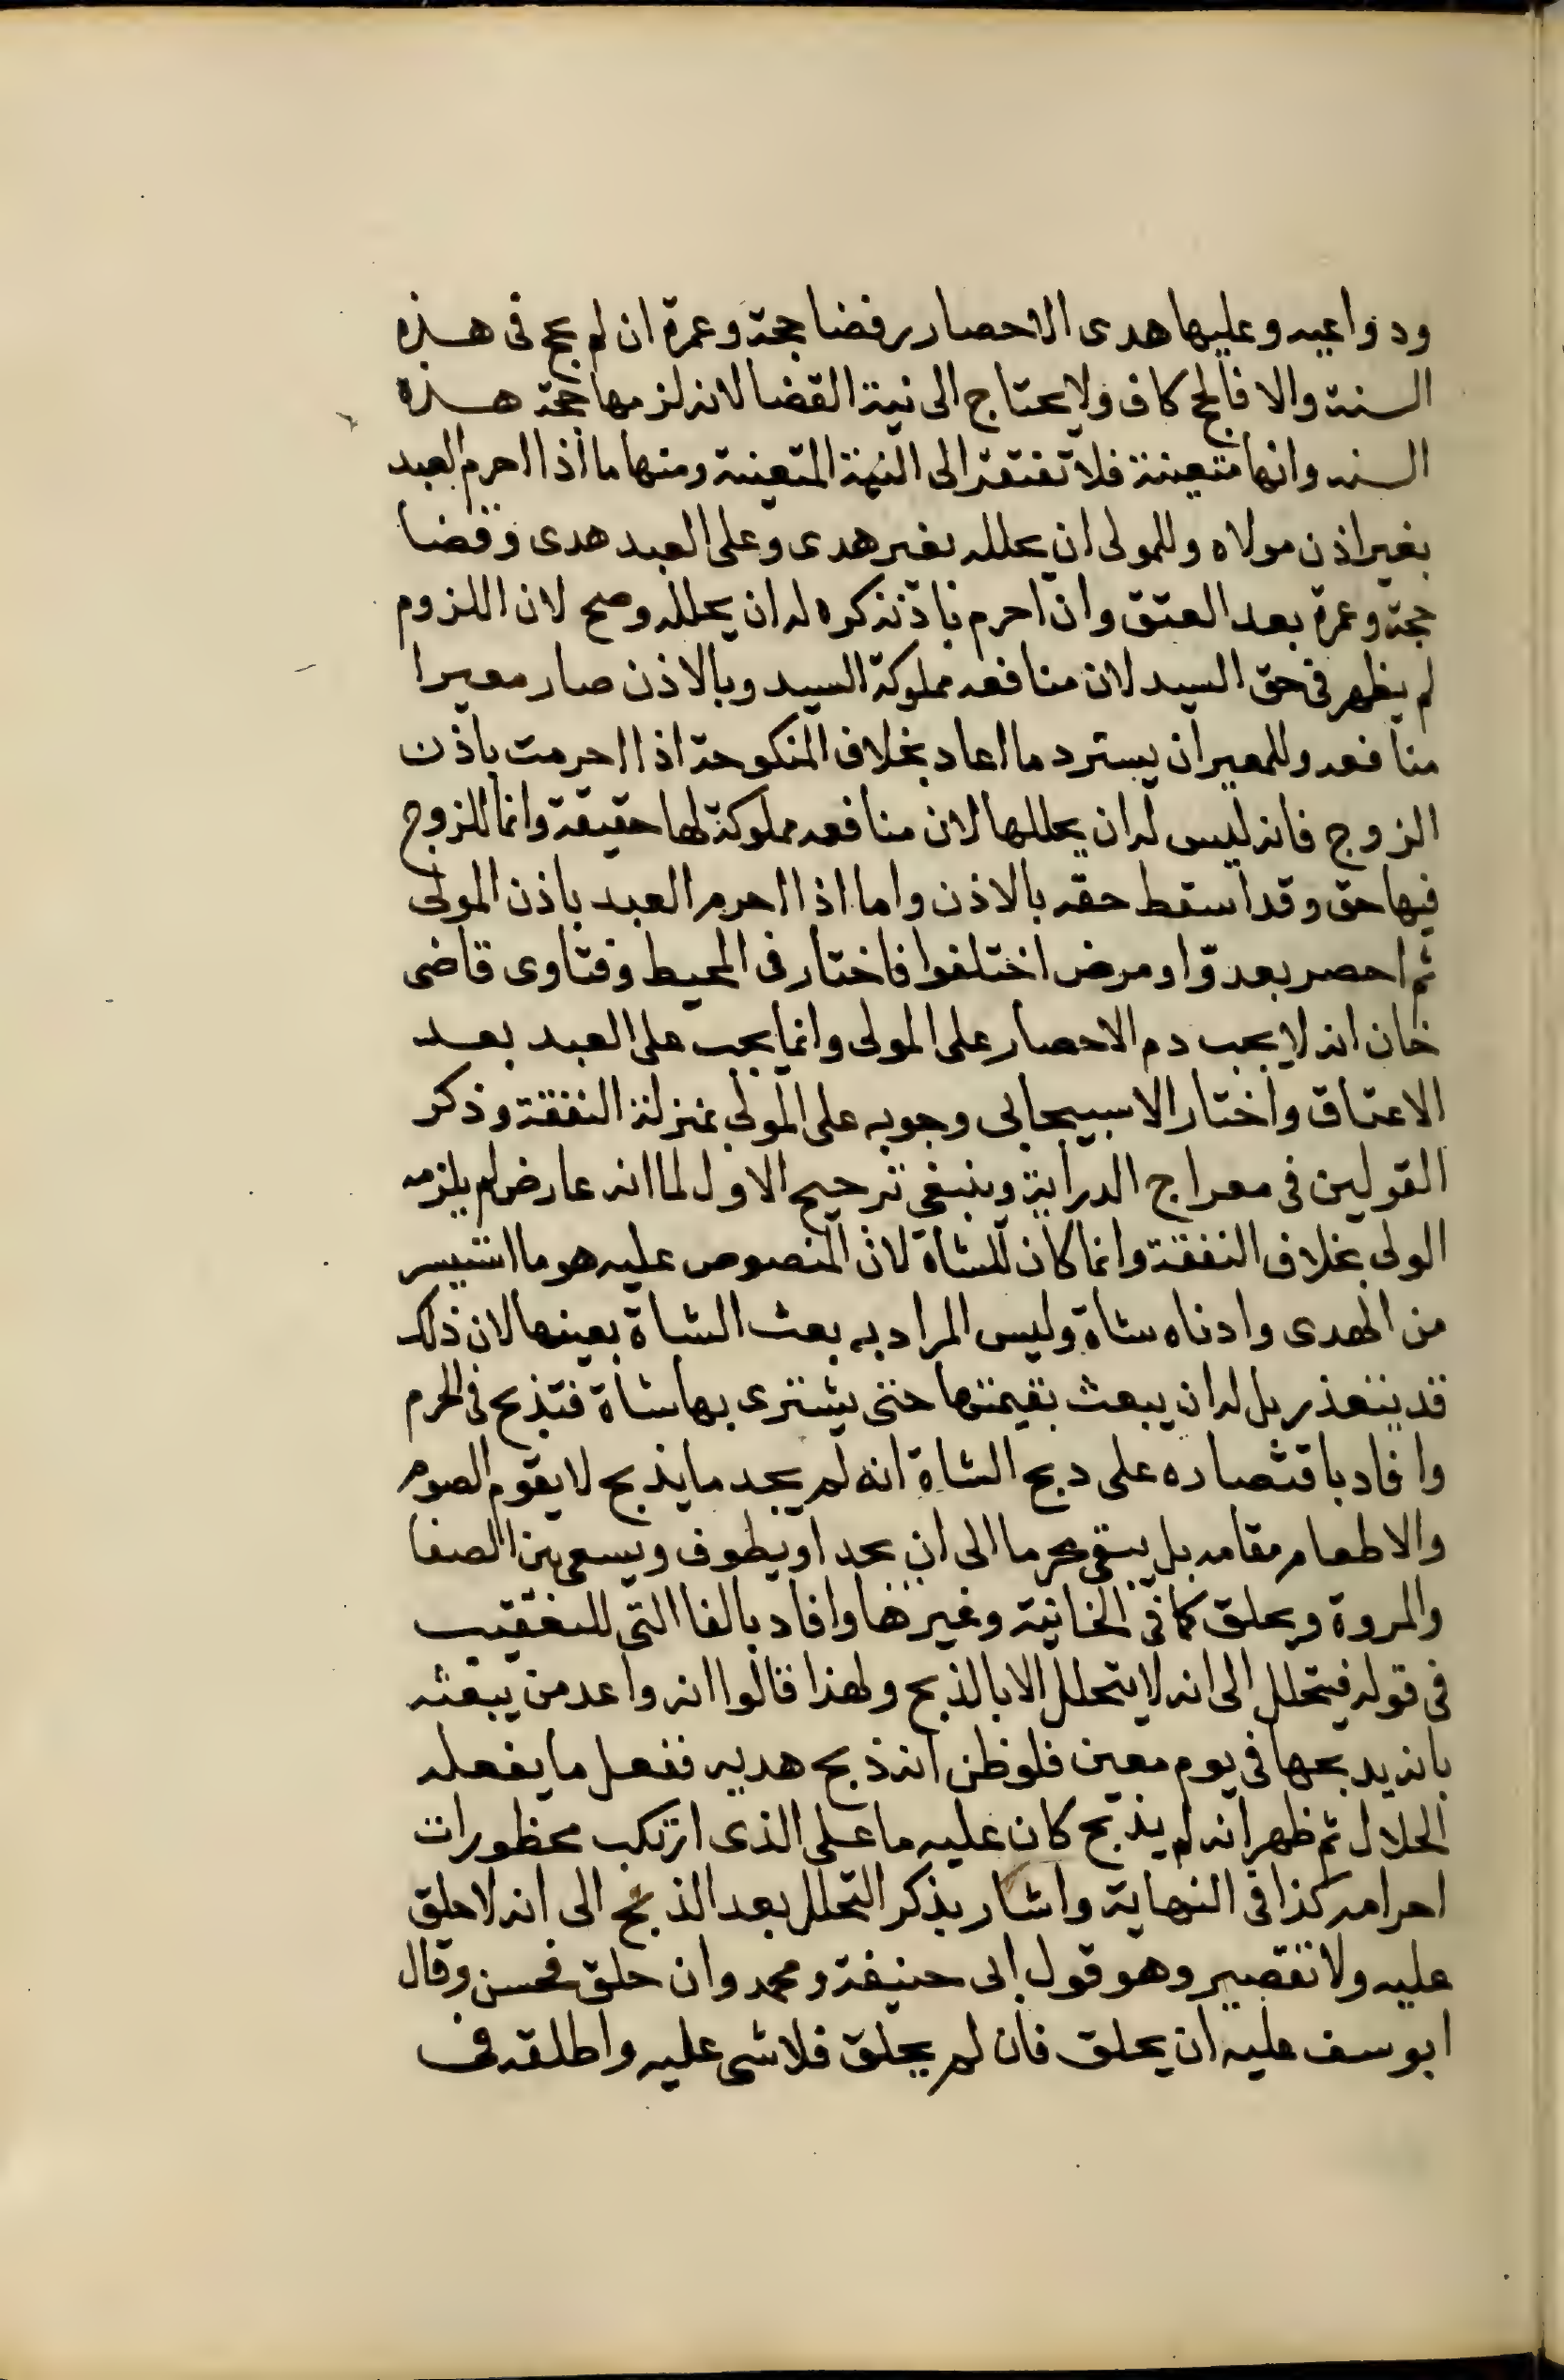 ودواعيه وعليها هدى الاحصار وقضا حجة وعمرة ان لم يحج فى هذه
السنة والا فالحج كاف ولا يحتاج الى نية القضا لانه لزمها حجة هذه
السنه وانها متعينة فلا تفتقر الى النية المتعينة ومنها ما اذا احرم العبد
بغير اذن مولاه وللمولى ان يحلله بغير هدى وعلى العبد هدى وقضا
حجة وعمرة بعد العتق وان احرم باذنه كره له ان يحلله وصح لان اللزوم
لم يظهر فى حق السيد لان منافعه مملوكة السيد وبالاذن صار معيرا
منافعه وللمعير ان يسترد ما اعاد بخلاف المنكوحة اذا احرمت باذن
الزوج فانه ليس له ان يحللها لان منافعه مملوكة لها حقيقة وانما للزوج
فيها حق وقد اسقط حقه بالاذن واما اذا احرم العبد باذن المولى
ثم احصر بعدو او مرض اختلفوا فاختار فى المحيط وفتاوى قاضى
خان انه لا يجب دم الاحصار على المولى وانما يجب على العبد بعد
الاعتاق واختار الاسبيجابى وجوبه على المولى بمنزلة النفقة وذكر
القولين فى معراج الدراية وينبغى ترجيح الاول لما انه عارض لم يلزمه
الولى بخلاف النفقة وانما كان للشاة لان المنصوص عليه هو ما استيسر
من الهدى وادناه شاة وليس المراد به بعث الشاة بعينها لان ذلك
قد يتعذر بل له ان يبعث بقيمتها حتى يشترى بها شاة فتذبح فى الحرم
وافاد باقتصاره على دبح الشاة انه لم يجد ما يذبح لا يقوم الصوم
والاطعام مقامه بل يبقى محرما الى ان يجد او يطوف ويسعى بين الصفا
والمروة ويحلق كما فى الخانية وغيرها وافاد بالفا التى للتعقيب
فى قوله فيتحلل الى انه لا يتحلل الا بالذبح ولهذا قالوا انه واعد من يبعثه
بانه يدبحها فى يوم معين فلو ظن انه ذبح هديه ففعل ما يفعله
الحلال ثم ظهر انه لم يذبح كان عليه ما على الذى ارتكب محظورات
احرامه كذا فى النهاية واشار بذكر التحلل بعد الذبح الى انه لا حلق
عليه ولا تقصير وهو قول ابى حنيفة ومحمد وان حلق فحسن وقال
ابو سف عليه ان يحلق فان لم يحلق فلا شى عليه واطلقه فى